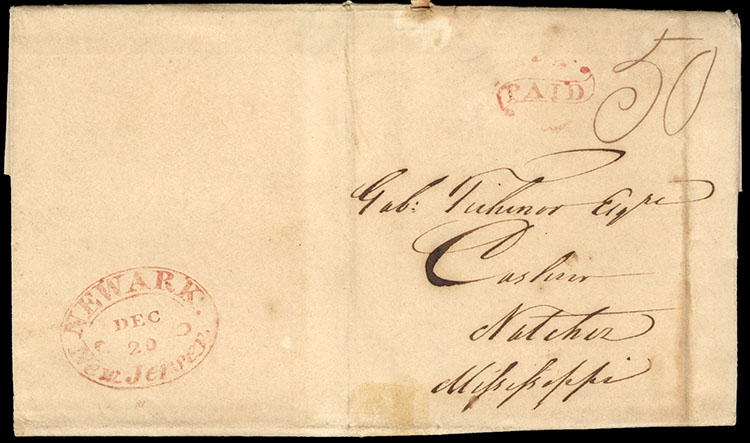 PAID
50
Gab: Tichenor Esqre
Cashier
Natchez
Mississippi
NEWARK.
DEC
20
New Jersey.